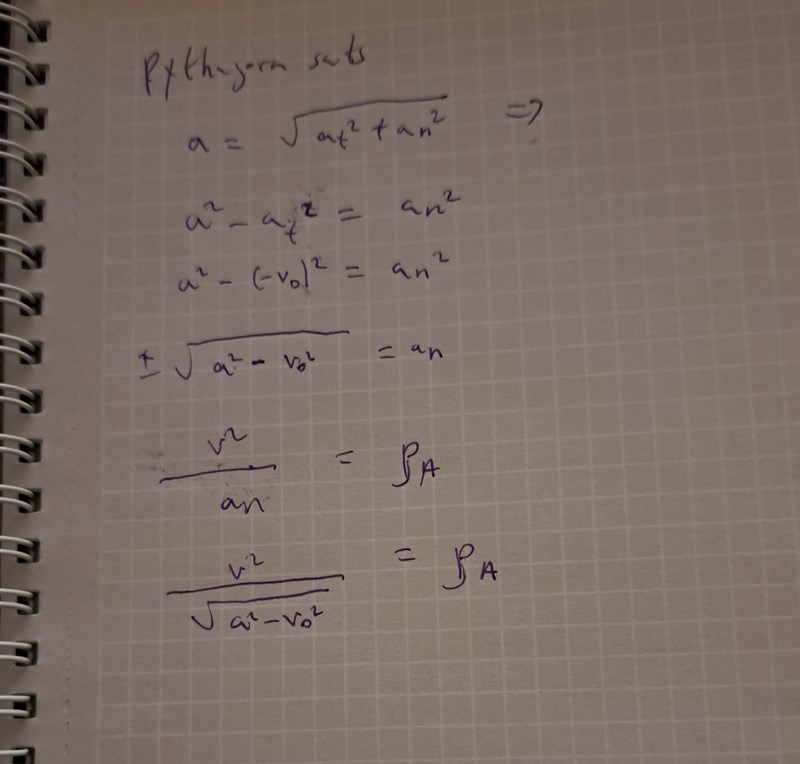 Pythagora sats
a = √(at² + an²) ⇒
a² - at² = an²
a² - (-v₀)² = an²
± √(a² - v₀²) = an
v² / an = ρA
v² / √(a² - v₀²) = ρA